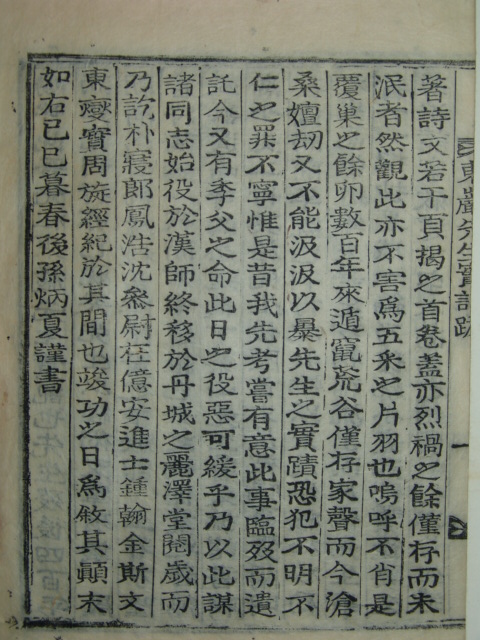 東巖先生實記跋 一
著詩文若干頁揭之首卷盖亦烈禍之餘僅存而未
泯者然觀此亦不害爲五采之片羽也嗚呼不肖是
覆巢之餘卵數百年來遁竄荒谷僅存家聲而今滄
桑嬗劫又不能汲汲以暴先生之實蹟恐犯不明不
仁之罪不寧惟是昔我先考嘗有意此事臨歿而遺
託今又有季父之命此日之役惡可緩乎乃以此謀
諸同志始役於漢師終移於丹城之麗澤堂閱歲而
乃訖朴寢郎鳳浩沈叅尉在億安進士鍾翰金斯文
東燮實周旋經紀於其間也竣功之日爲敘其顚末
如右己巳暮春後孫炳夏謹書